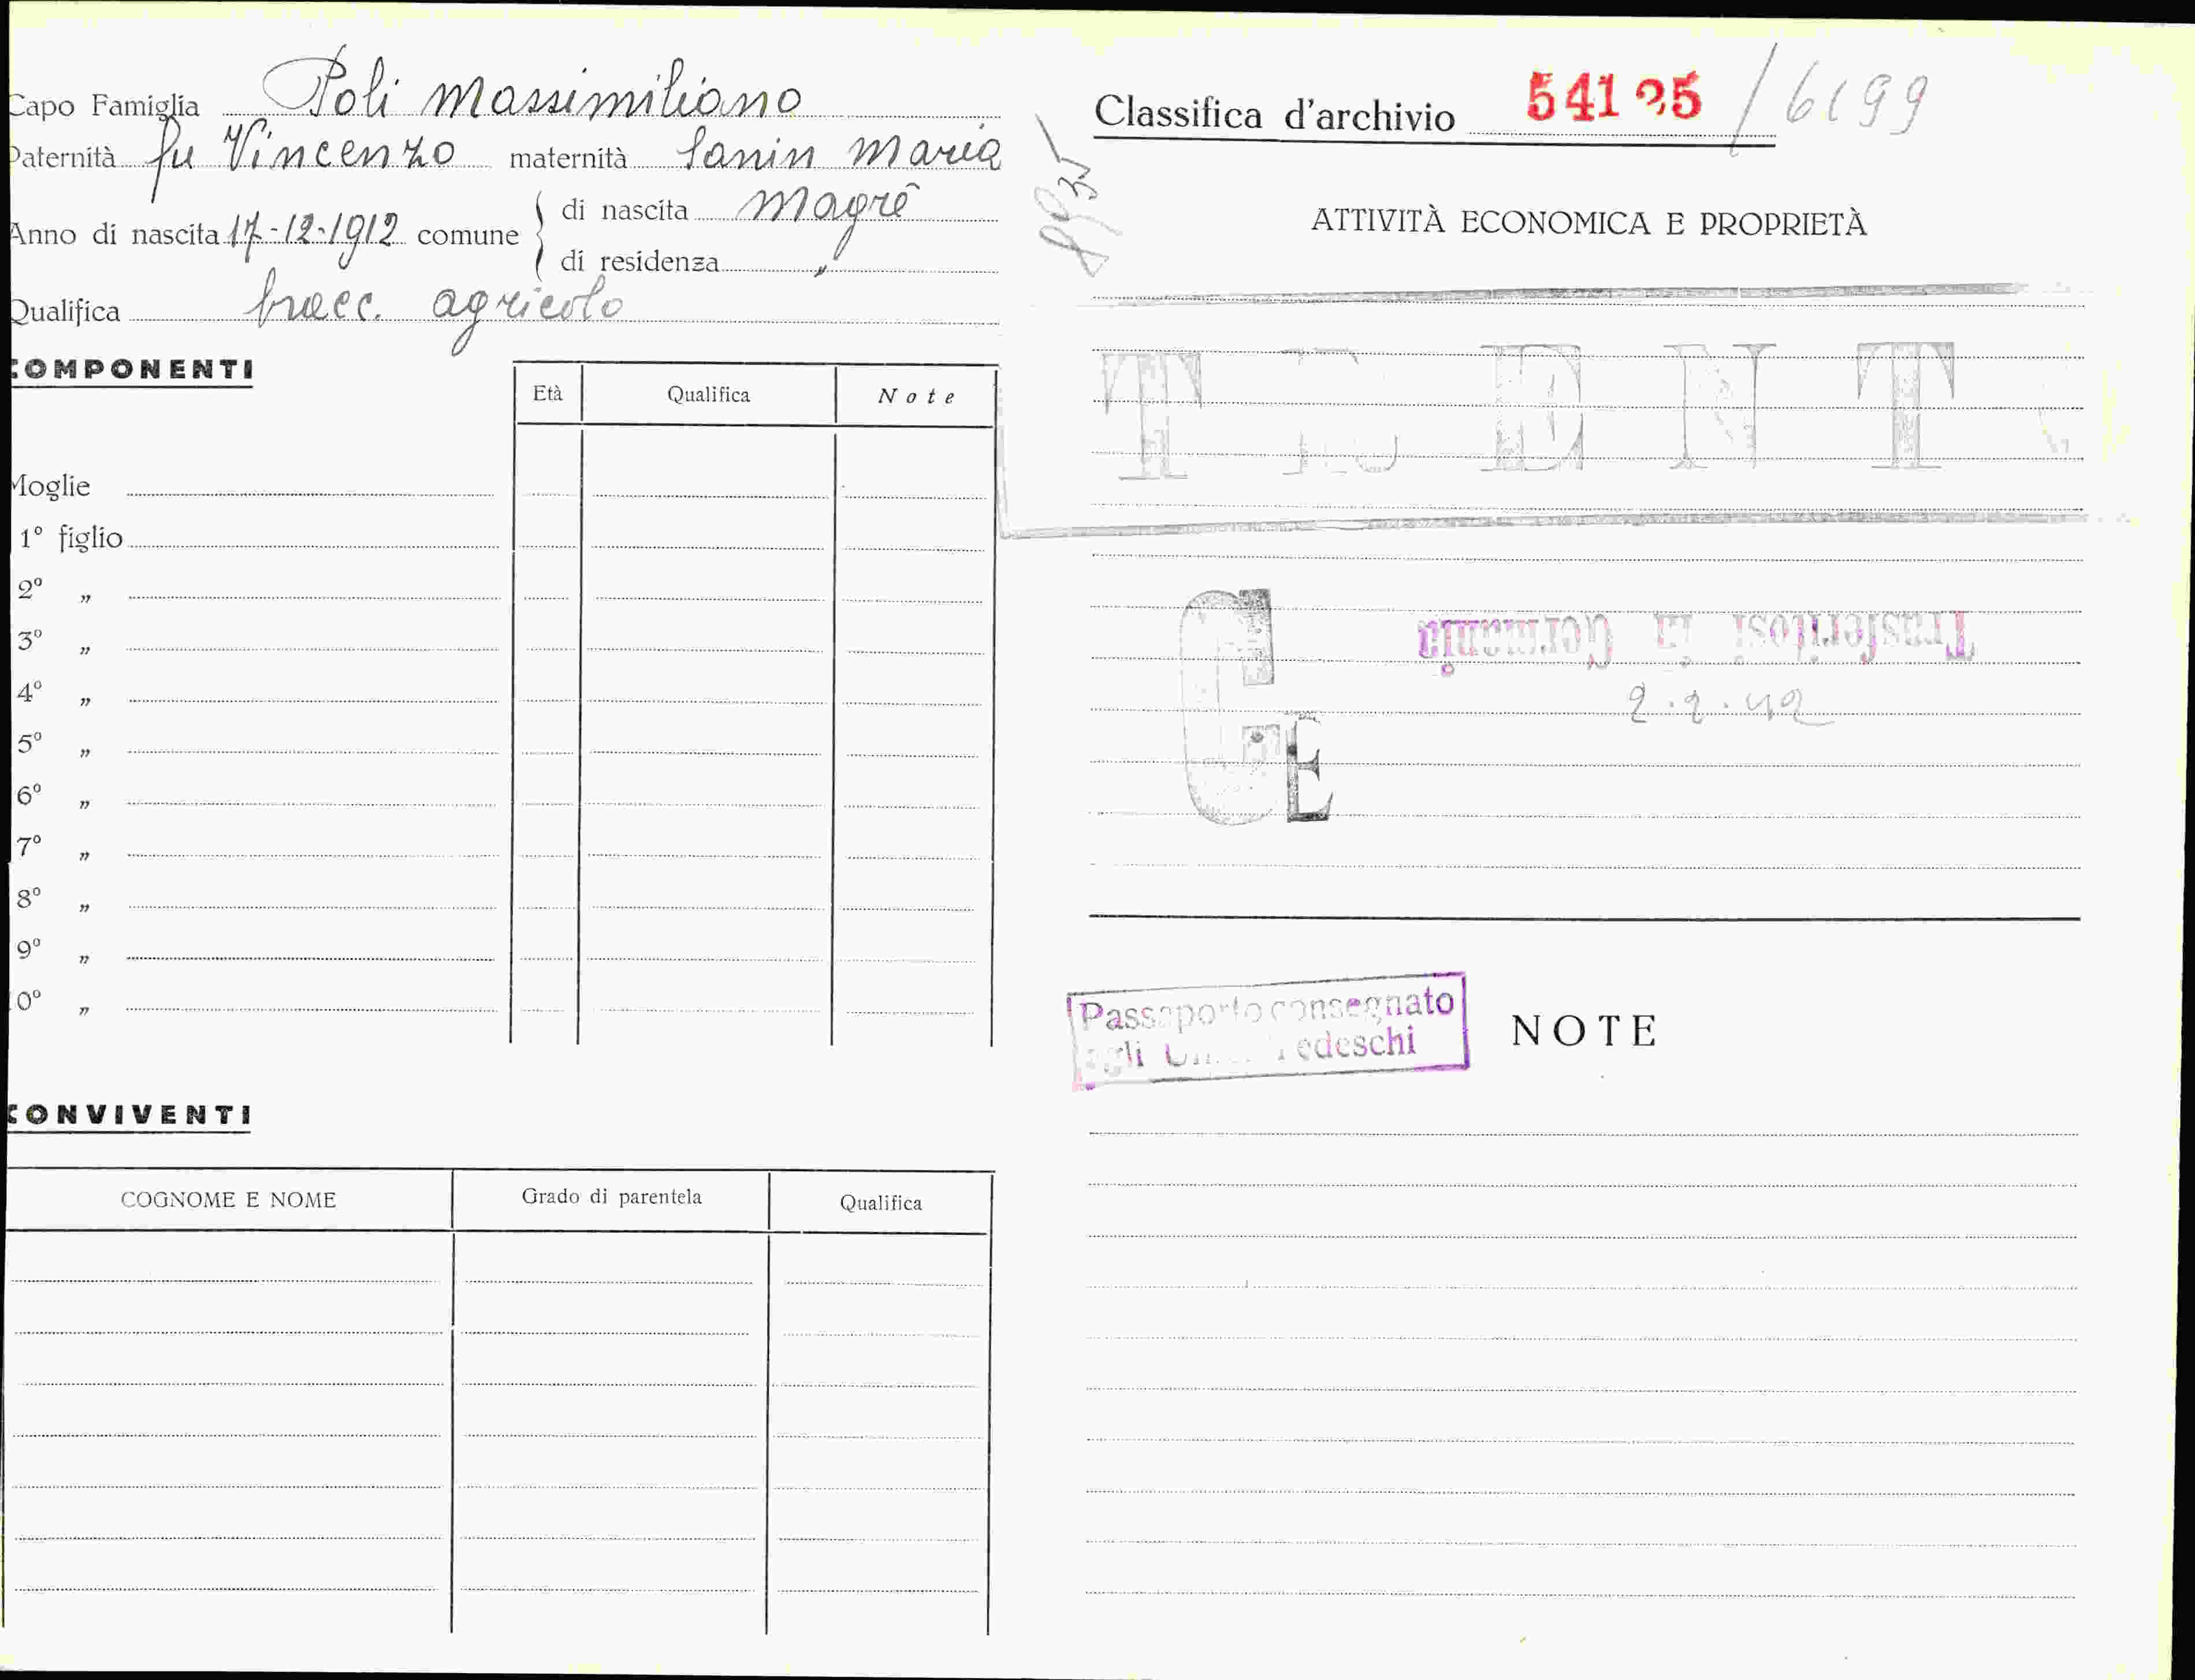 Capo Famiglia Poli Massimiliano
Paternità fu Vincenzo maternità Sanin Maria
Anno di nascita 17-12-1912 comune di nascita Magrè
di residenza „
Qualifica bracc. agricolo
COMPONENTI
Età Qualifica Note
Moglie
1° figlio
2° „
3° „
4° „
5° „
6° „
7° „
8° „
9° „
10° „
CONVIVENTI
COGNOME E NOME Grado di parentela Qualifica
8935
Classifica d'archivio 54195 / 6199
ATTIVITÀ ECONOMICA E PROPRIETÀ
TRENTO
Trasferitosi in Germania
2.2.42
C
E
Passaporto consegnato
agli Uffici Tedeschi
NOTE